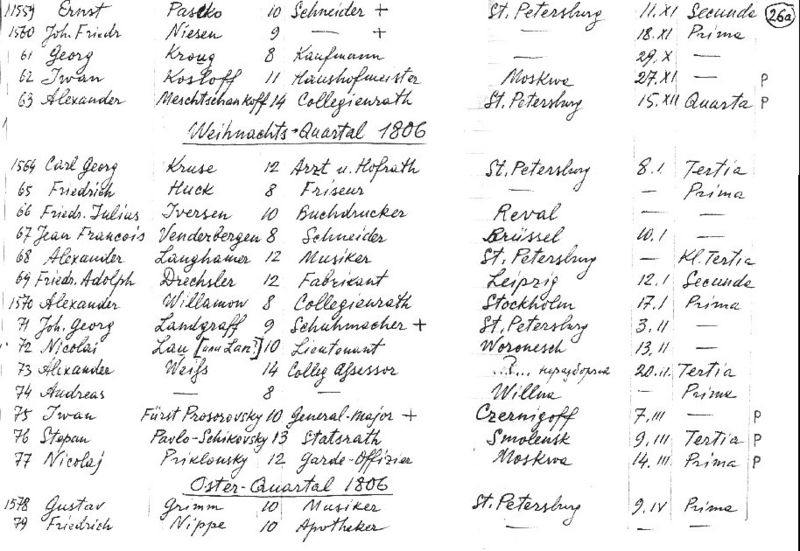 11559 Ernst Pastko 10 Schneider + St. Petersburg 11.XI Secunda 26a
1560 Joh. Friedr Niesen 9 — + — 18.XI Prima
61 Georg Kroug 8 Kaufmann — 29.X —
62 Iwan Kosloff 11 Haushofmeister Moskwa 27.XI — P
63 Alexander Meschtschankoff 14 Collegienrath St. Petersburg 15.XII Quarta P
Weihnachts-Quartal 1806
1564 Carl Georg Kruse 12 Arzt u. Hofrath St. Petersburg 8.I Tertia
65 Friedrich Huck 8 Friseur — — Prima
66 Friedr. Julius Iversen 10 Buchdrucker Reval — —
67 Jean Francois Venderbergen 8 Schneider Brüssel 10.I —
68 Alexander Langhamer 12 Musiker St. Petersburg — Kl. Tertia
69 Friedr. Adolph Drechsler 12 Fabrikant Leipzig 12.I Secunda
1570 Alexander Willamow 8 Collegienrath Stockholm 17.I Prima
71 Joh. Georg Landgraff 9 Schuhmacher + St. Petersburg 3.II —
72 Nicolai Lau 10 Lieutenant Woronesch 13.II —
73 Alexander Weiß 14 Colleg Assessor ..?.. неразборчиво 20.II. Tertia
74 Andreas — 8 — Willna — Prima
75 Iwan Fürst Prosorovsky 10 General-Major + Czernigoff 7.III — P
76 Stepan Pavlo-Schikovsky 13 Statsrath Smolensk 9.III Tertia P
77 Nicolaj Priklonsky 12 Garde-Offizier Moskwa 14.III Prima P
Oster-Quartal 1806
1578 Gustav Grimm 10 Musiker St. Petersburg 9.IV Prima
79 Friedrich Nippe 10 Apotheker — — —